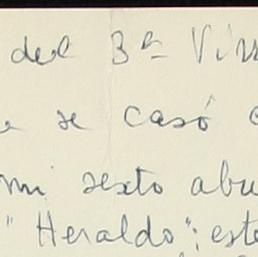 del 3er Virr
e se casó
mi sexto abu
" Heraldo"; este